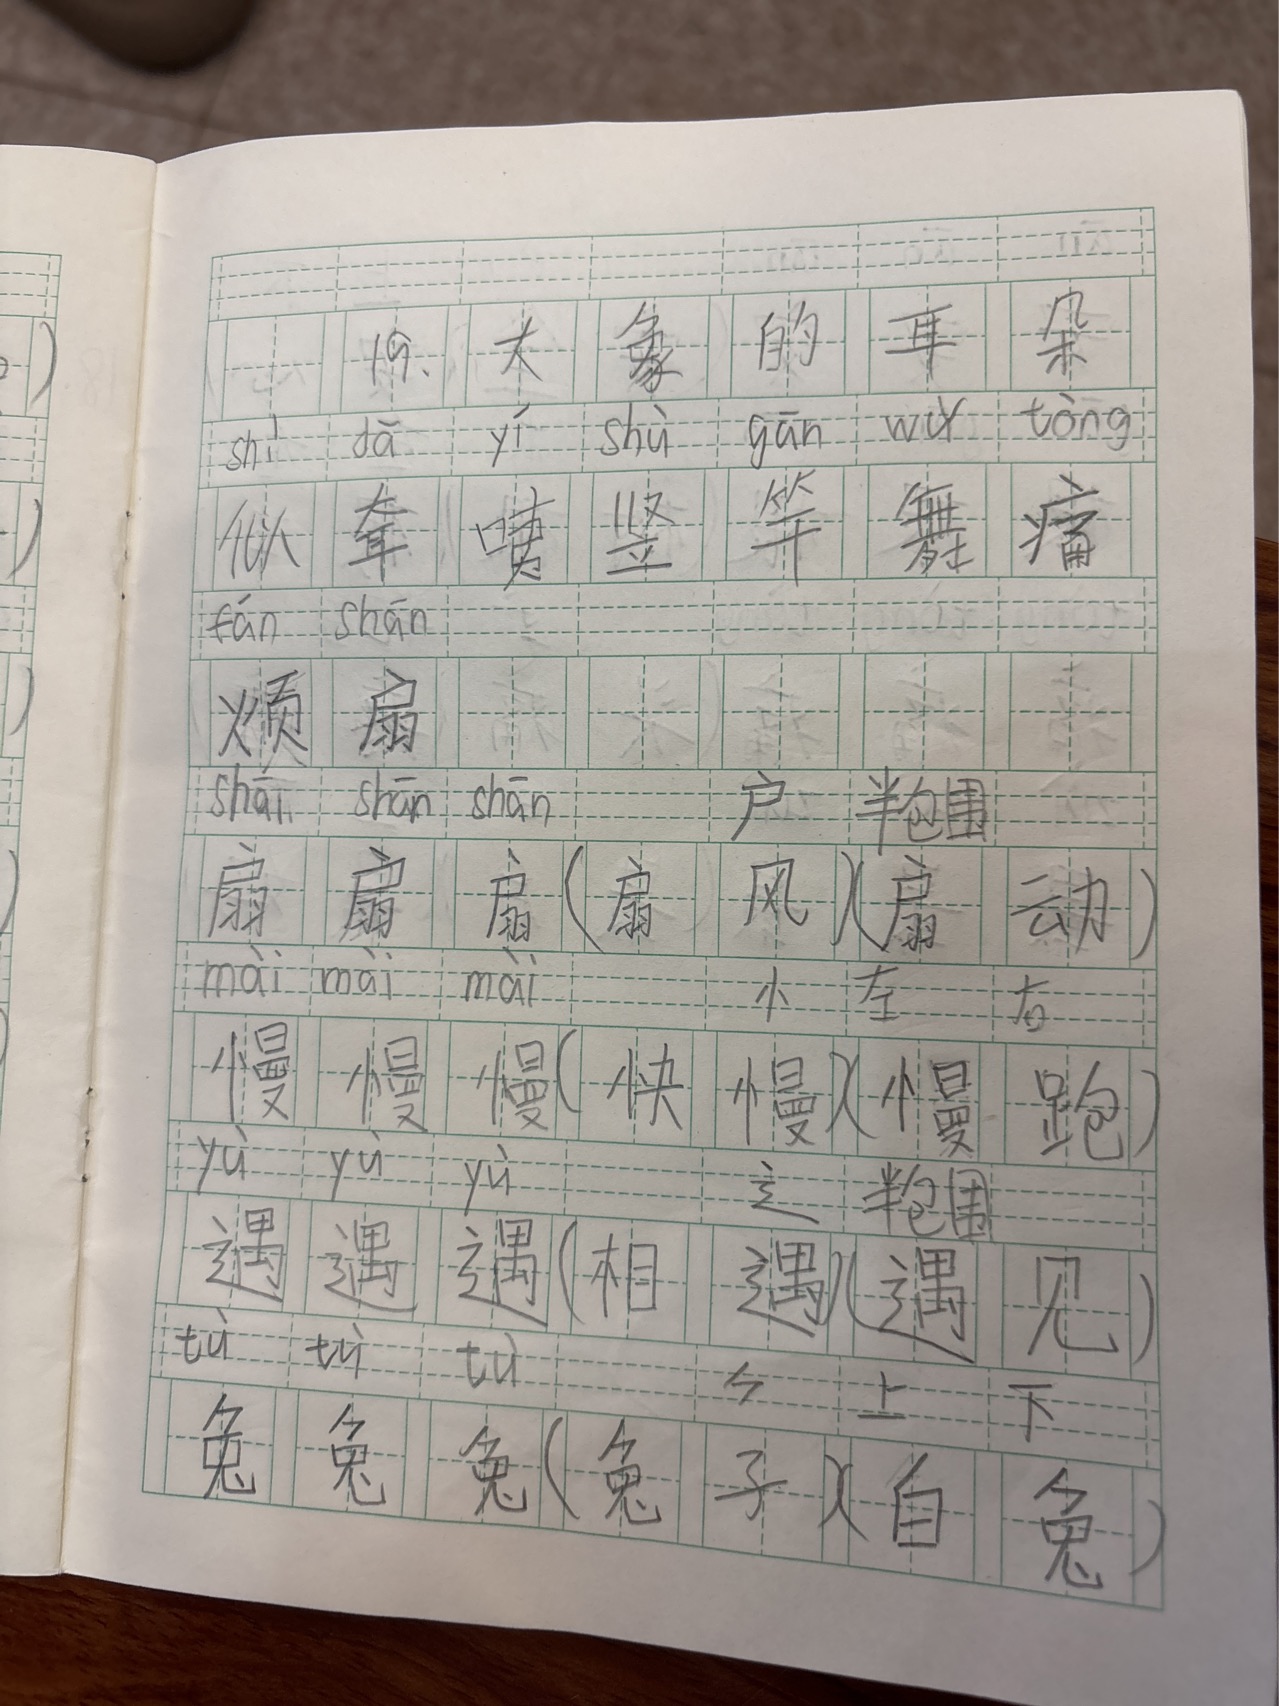 19.大象的耳朵
shì dā yí shù gān wǔ tòng
似耷咦竖竿舞痛
fán shān
烦扇
shāi shān shān 户 半包围
扇扇扇(扇风)(扇动)
mài mài mài 小 左 右
慢慢慢(快慢)(慢跑)
yù yù yù 辶 半包围
遇遇遇(相遇)(遇见)
tù tù tù ⺈ 上 下
兔兔兔(兔子)(白兔)